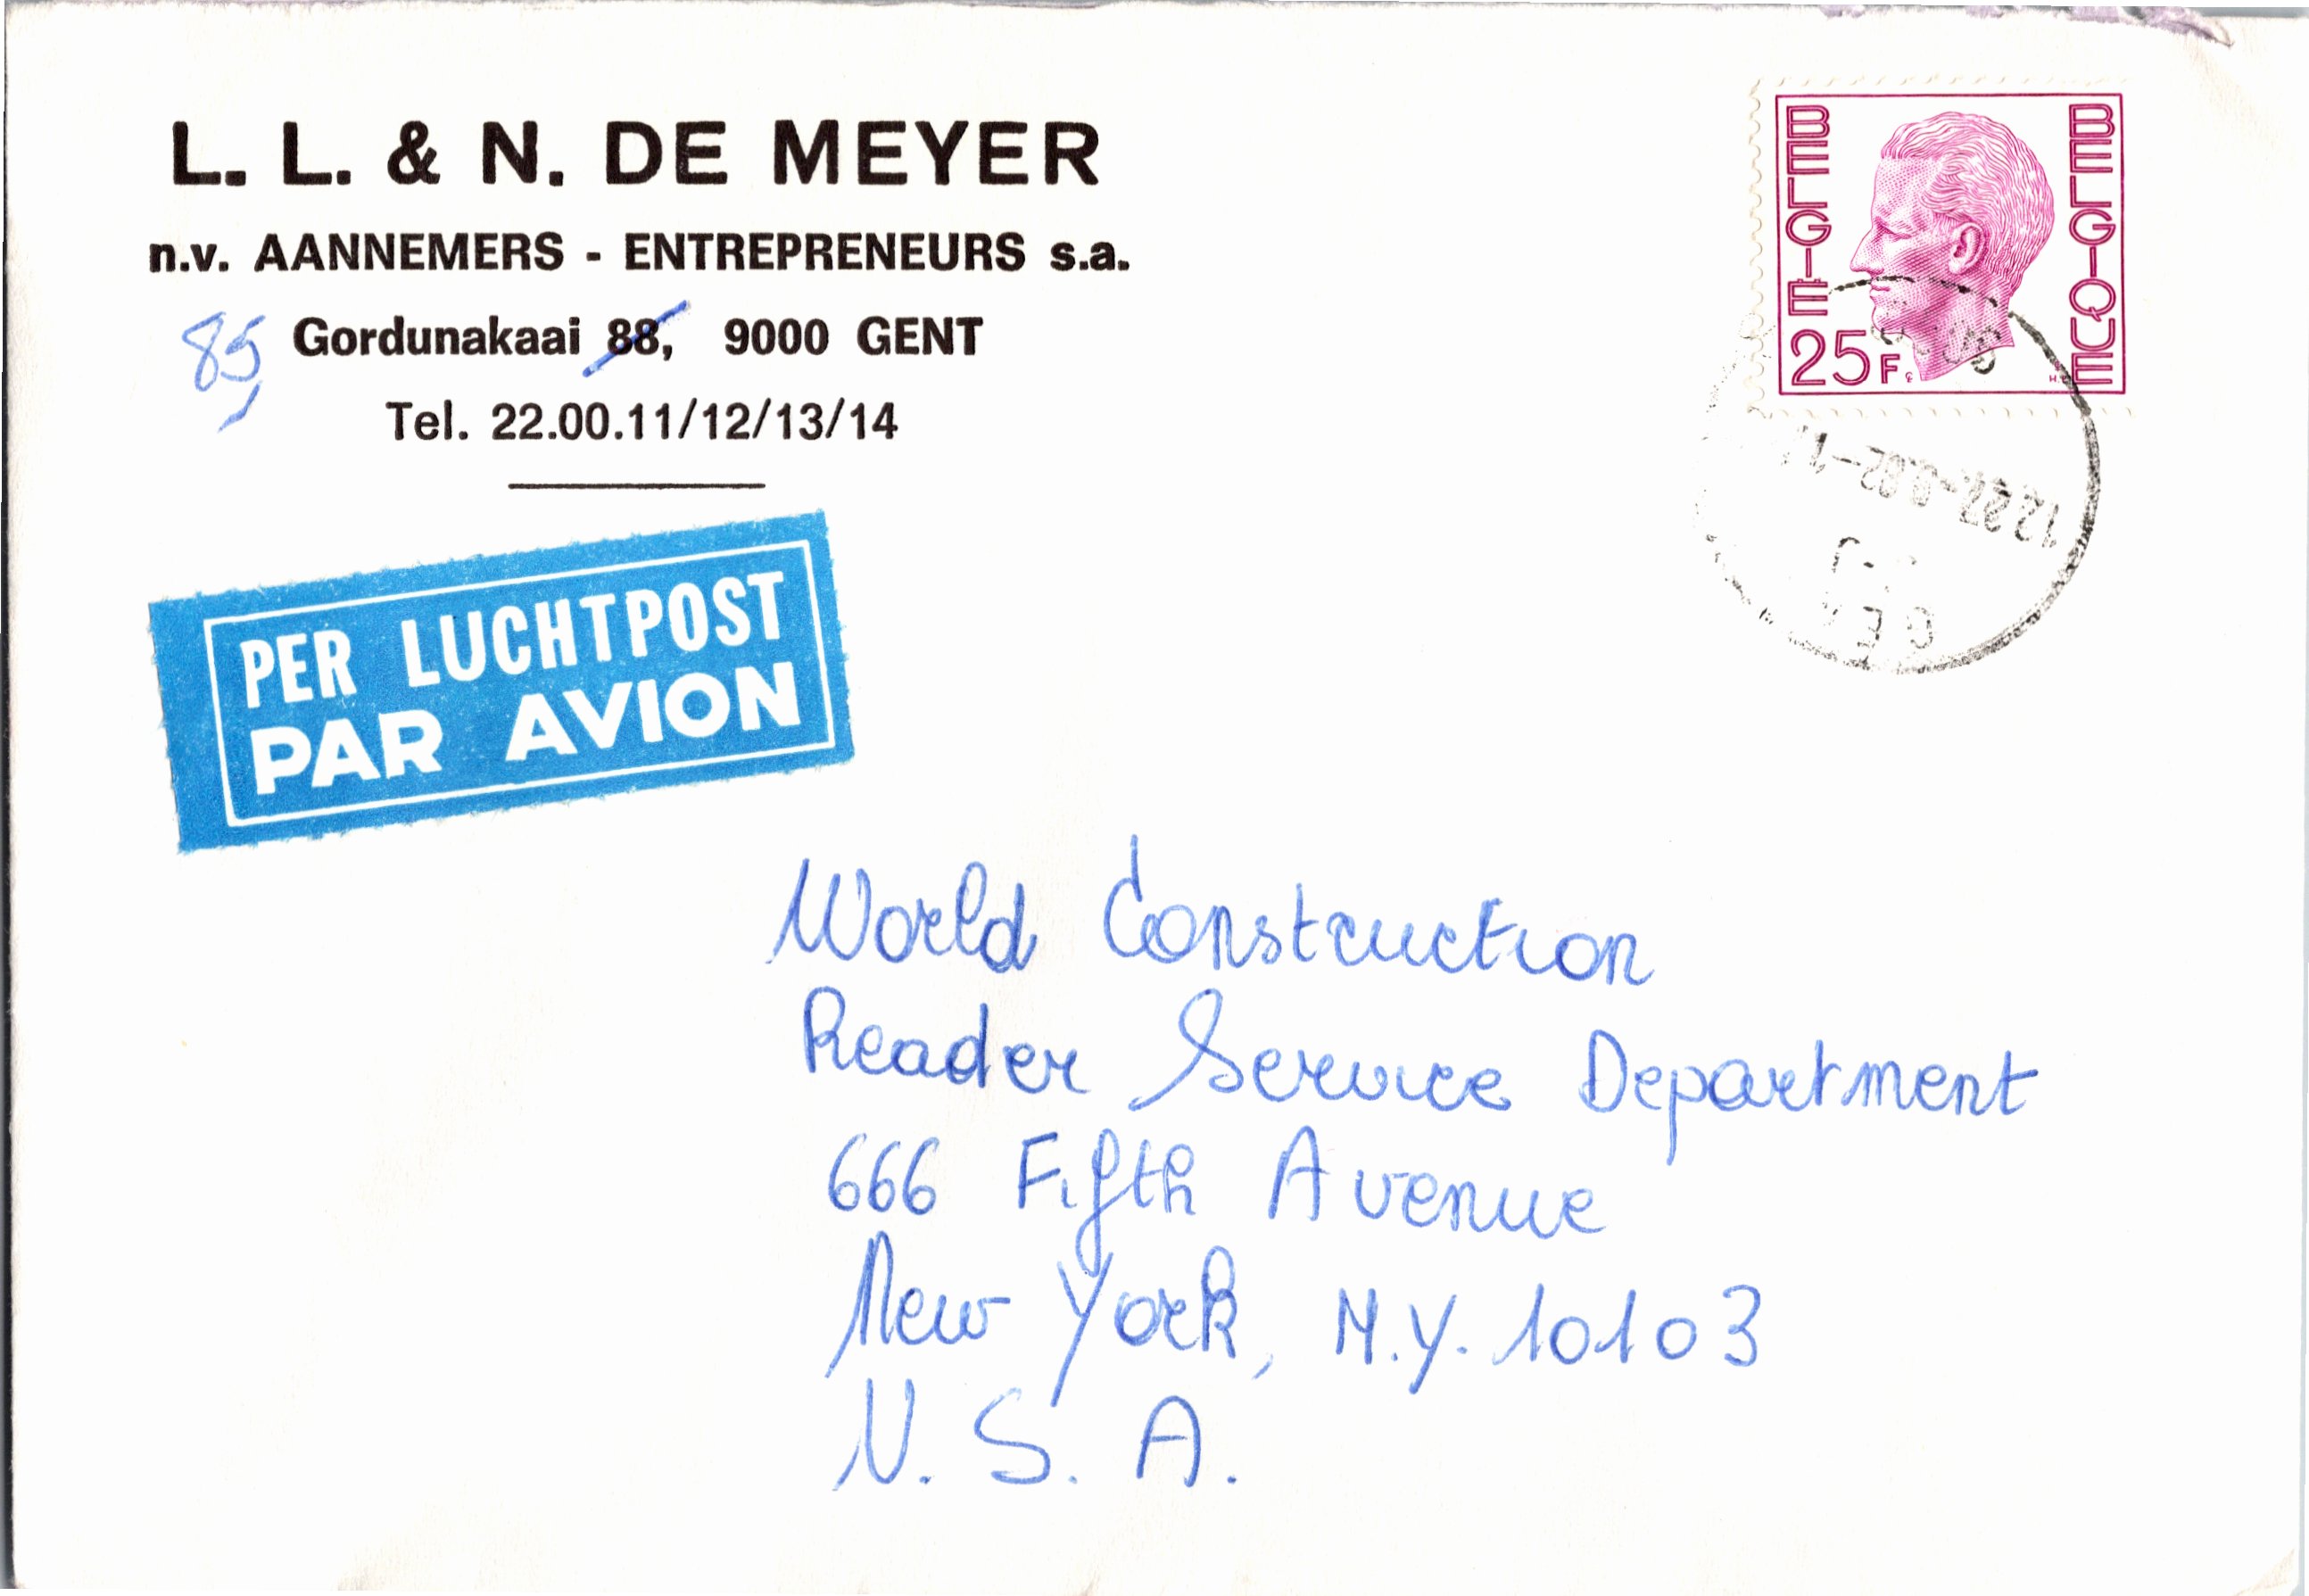 L. L. & N. DE MEYER
n.v. AANNEMERS - ENTREPRENEURS s.a.
85, Gordunakaai 88, 9000 GENT
Tel. 22.00.11/12/13/14
BELGIË
BELGIQUE
25F
PER LUCHTPOST
PAR AVION
World Construction
Reader Service Department
666 Fifth Avenue
New York, N.Y. 10103
U. S. A.